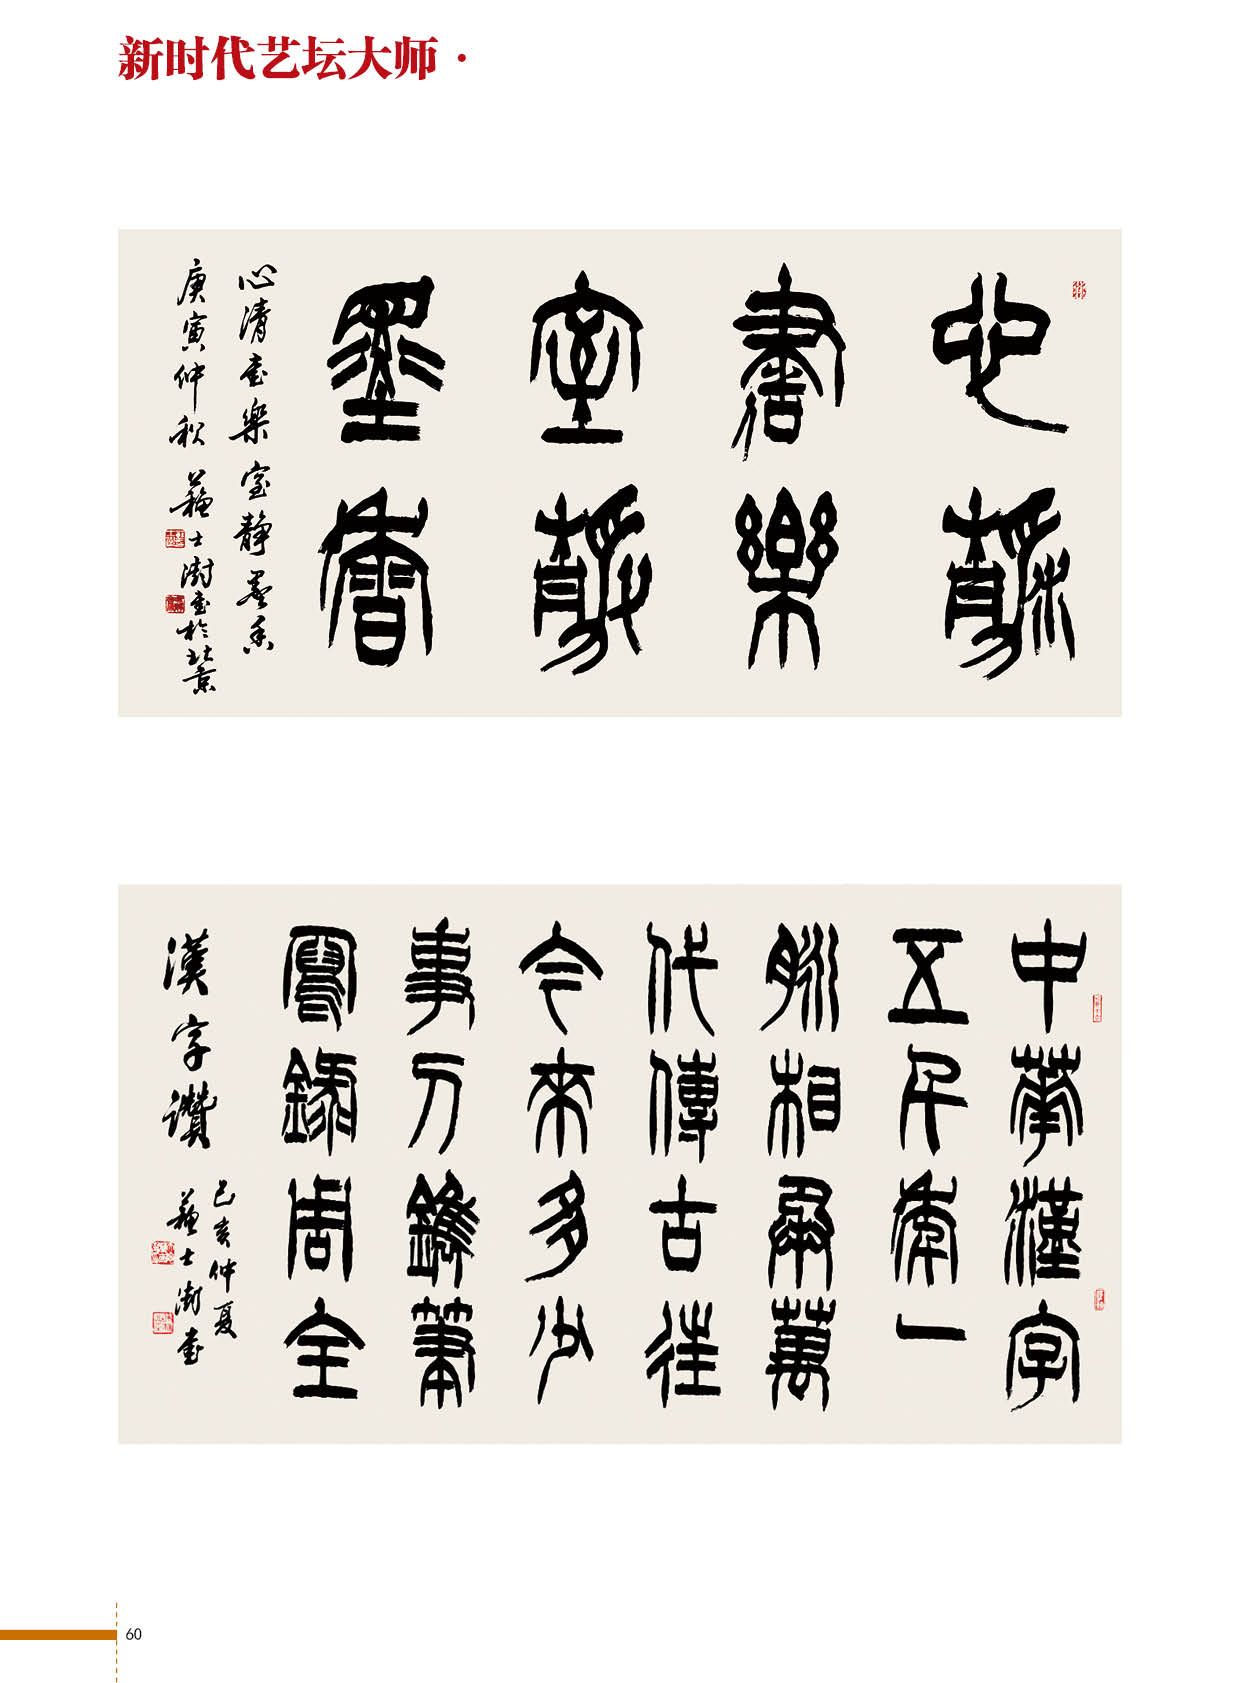 新时代艺坛大师·
心清
書樂
室靜
墨香
心清書樂室靜墨香
庚寅仲秋蘇士澍書於北京
中華漢字
五千年一
脈相承萬
代傳古往
今來多少
事刀鐫筆
寫錄周全
漢字讚
己亥仲夏
蘇士澍書
60